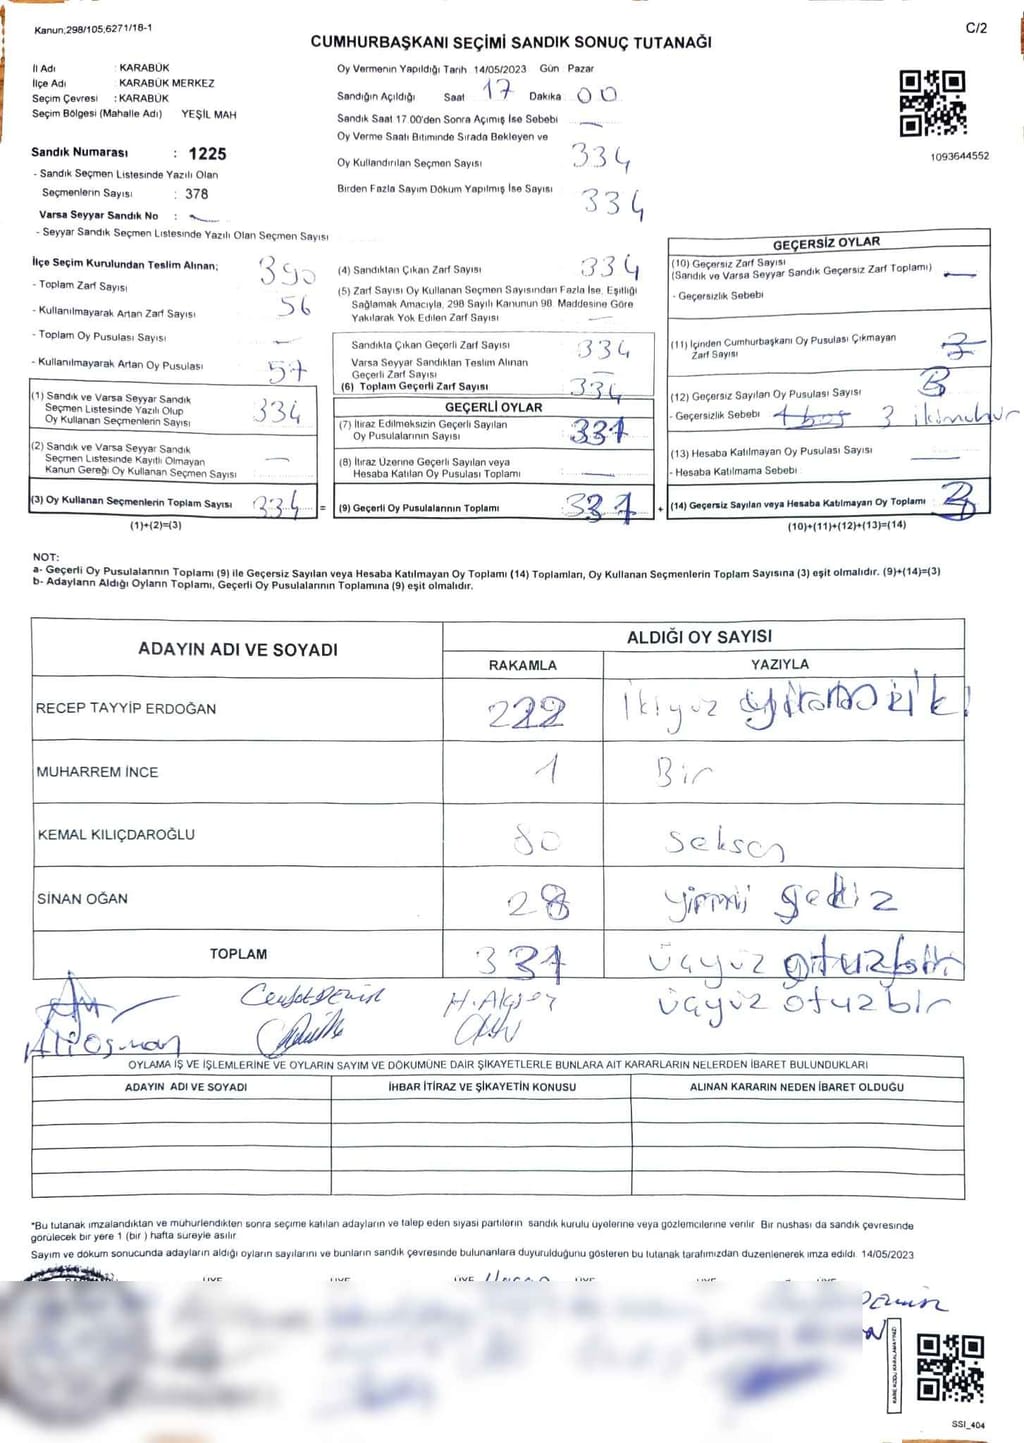 Kanun;298/105,6271/18-1
C/2
CUMHURBAŞKANI SEÇİMİ SANDIK SONUÇ TUTANAĞI
İl Adı : KARABÜK
İlçe Adı KARABÜK MERKEZ
Seçim Çevresi : KARABÜK
Seçim Bölgesi (Mahalle Adı) YEŞİL MAH
Sandık Numarası : 1225
- Sandık Seçmen Listesinde Yazılı Olan
Seçmenlerin Sayısı : 378
Varsa Seyyar Sandık No : —
- Seyyar Sandık Seçmen Listesinde Yazılı Olan Seçmen Sayısı
Oy Vermenin Yapıldığı Tarih 14/05/2023 Gün Pazar
Sandığın Açıldığı Saat 17 Dakika 00
Sandık Saat 17.00'den Sonra Açımış İse Sebebi —
Oy Verme Saati Bitiminde Sırada Bekleyen ve
Oy Kullandırılan Seçmen Sayısı 334
Birden Fazla Sayım Döküm Yapılmış İse Sayısı 334
1093644552
İlçe Seçim Kurulundan Teslim Alınan;
- Toplam Zarf Sayısı 390
- Kullanılmayarak Artan Zarf Sayısı 56
- Toplam Oy Pusulası Sayısı : —
- Kullanılmayarak Artan Oy Pusulası 57
(1) Sandık ve Varsa Seyyar Sandık
Seçmen Listesinde Yazılı Olup
Oy Kullanan Seçmenlerin Sayısı 334
(2) Sandık ve Varsa Seyyar Sandık
Seçmen Listesinde Kayıtlı Olmayan
Kanun Gereği Oy Kullanan Seçmen Sayısı —
(3) Oy Kullanan Seçmenlerin Toplam Sayısı 334 =
(1)+(2)=(3)
(4) Sandıktan Çıkan Zarf Sayısı 334
(5) Zarf Sayısı Oy Kullanan Seçmen Sayısından Fazla İse, Eşitliği
Sağlamak Amacıyla, 298 Sayılı Kanunun 98. Maddesine Göre
Yakılarak Yok Edilen Zarf Sayısı —
Sandıkta Çıkan Geçerli Zarf Sayısı 334
Varsa Seyyar Sandıktan Teslim Alınan
Geçerli Zarf Sayısı —
(6) Toplam Geçerli Zarf Sayısı 334
GEÇERLİ OYLAR
(7) İtiraz Edilmeksizin Geçerli Sayılan
Oy Pusulalarının Sayısı 331
(8) İtiraz Üzerine Geçerli Sayılan veya
Hesaba Katılan Oy Pusulası Toplamı : —
(9) Geçerli Oy Pusulalarının Toplamı 331 +
GEÇERSİZ OYLAR
(10) Geçersiz Zarf Sayısı
(Sandık ve Varsa Seyyar Sandık Geçersiz Zarf Toplamı) —
- Geçersizlik Sebebi
(11) İçinden Cumhurbaşkanı Oy Pusulası Çıkmayan
Zarf Sayısı
(12) Geçersiz Sayılan Oy Pusulası Sayısı 3
- Geçersizlik Sebebi 1 boş 3 iki mühür
(13) Hesaba Katılmayan Oy Pusulası Sayısı —
- Hesaba Katılmama Sebebi
(14) Geçersiz Sayılan veya Hesaba Katılmayan Oy Toplamı 3
(10)+(11)+(12)+(13)=(14)
NOT:
a- Geçerli Oy Pusulalarının Toplamı (9) ile Geçersiz Sayılan veya Hesaba Katılmayan Oy Toplamı (14) Toplamları, Oy Kullanan Seçmenlerin Toplam Sayısına (3) eşit olmalıdır. (9)+(14)=(3)
b- Adayların Aldığı Oyların Toplamı, Geçerli Oy Pusulalarının Toplamına (9) eşit olmalıdır.
ADAYIN ADI VE SOYADI ALDIĞI OY SAYISI
RAKAMLA YAZIYLA
RECEP TAYYİP ERDOĞAN 222 İkiyüz iki
MUHARREM İNCE 1 Bir
KEMAL KILIÇDAROĞLU 80 seksen
SİNAN OĞAN 28 yirmi sekiz
TOPLAM 331 üçyüz otuz
üçyüz otuz bir
Cevdet DEMİR H. Akçay
Ali Osman
OYLAMA İŞ VE İŞLEMLERİNE VE OYLARIN SAYIM VE DÖKÜMÜNE DAİR ŞİKAYETLERLE BUNLARA AİT KARARLARIN NELERDEN İBARET BULUNDUKLARI
ADAYIN ADI VE SOYADI İHBAR İTİRAZ VE ŞİKAYETİN KONUSU ALINAN KARARIN NEDEN İBARET OLDUĞU
*Bu tutanak imzalandıktan ve mühürlendikten sonra seçime katılan adayların ve talep eden siyasi partilerin sandık kurulu üyelerine veya gözlemcilerine verilir Bir nüshası da sandık çevresinde
görülecek bir yere 1 (bir ) hafta süreyle asılır
Sayım ve döküm sonucunda adayların aldığı oyların sayılarını ve bunların sandık çevresinde bulunanlara duyurulduğunu gösteren bu tutanak tarafımızdan düzenlenerek imza edildi. 14/05/2023
ÜYE ÜYE ÜYE ÜYE ÜYE ÜYE
DEMİR
KARE KODU KARALAMAYINIZ!
SSI_404